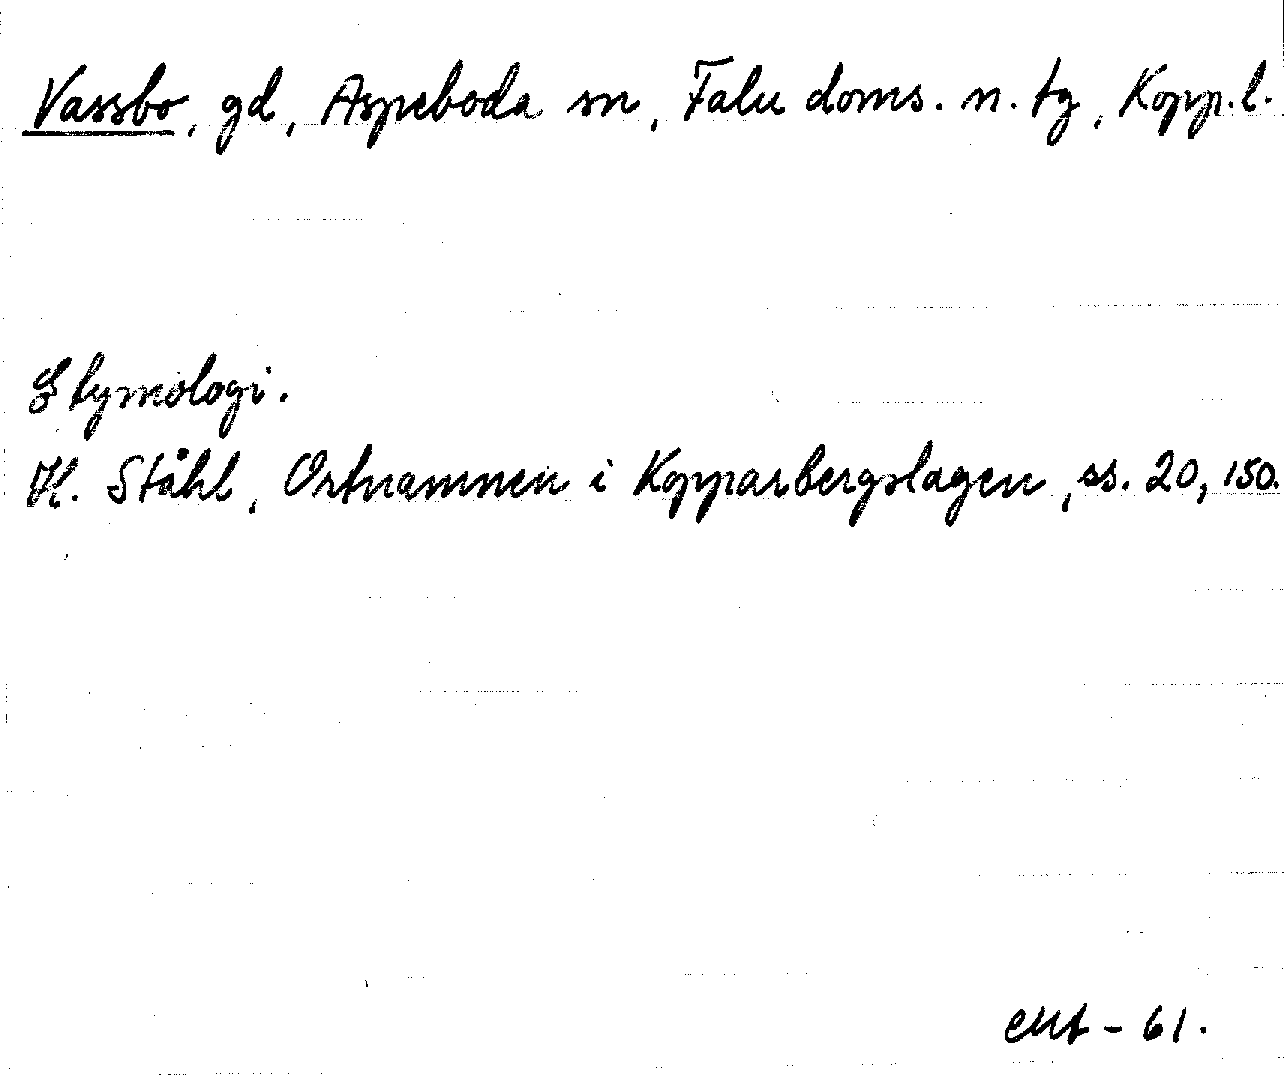 Vassbo, gd, Aspeboda sn, Falu doms. n. tg, Kopp.l.
Etymologi.
H. Ståhl, Ortnamnen i Kopparbergslagen, ss. 20, 150.
- 61.